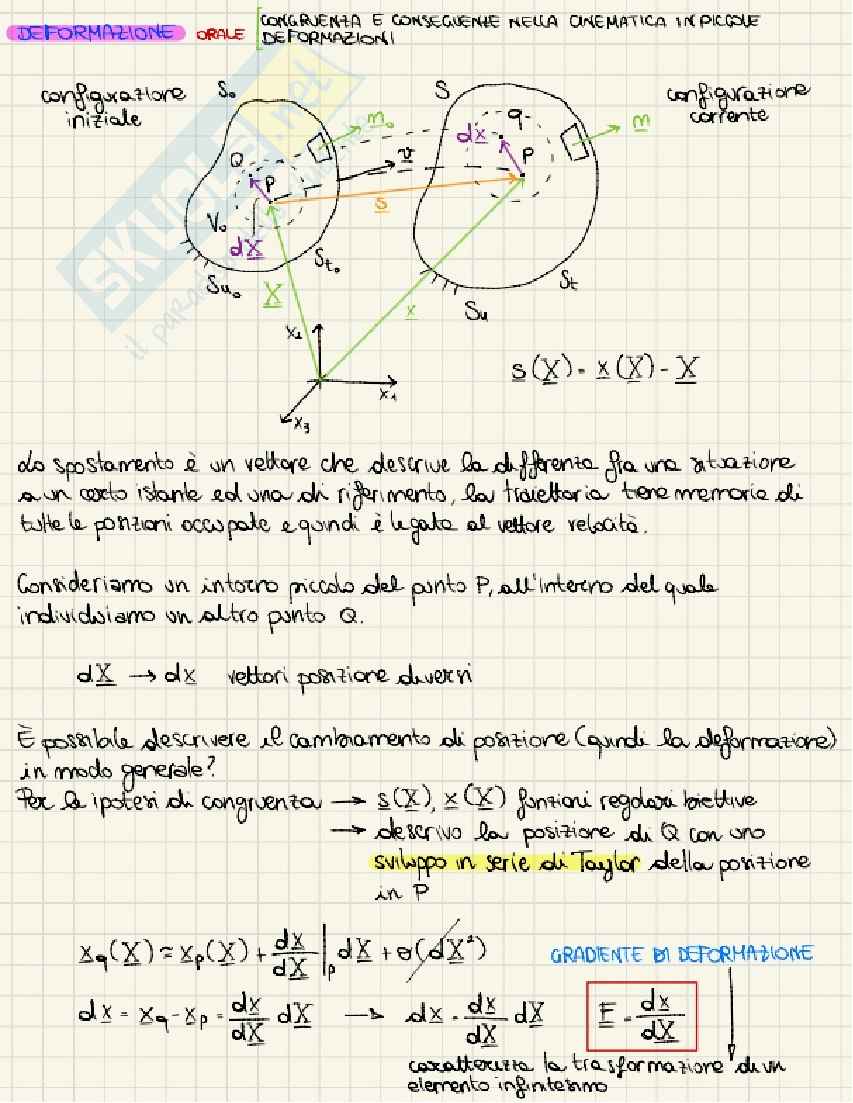 DEFORMAZIONE ORALE CONGRUENZA E CONSEGUENZE NELLA CINEMATICA IN PICCOLE
DEFORMAZIONI
configurazione
iniziale
S₀
S
configurazione
corrente
m₀
m
Q
P
dX
v
s
dx
q
P
V₀
Su₀
St₀
X
x
Su
St
x₂
x₁
x₃
s(X) = x(X) - X
SKUOLA.net
Lo spostamento è un vettore che descrive la differenza fra una situazione
a un certo istante ed una di riferimento, la traiettoria tiene memoria di
tutte le posizioni occupate e quindi è legata al vettore velocità.
Consideriamo un intorno piccolo del punto P, all'interno del quale
individuiamo un altro punto Q.
dX → dx vettori posizione diversi
È possibile descrivere il cambiamento di posizione (quindi la deformazione)
in modo generale?
Per le ipotesi di congruenza → s(X), x(X) funzioni regolari biettive
→ descrivo la posizione di Q con uno
sviluppo in serie di Taylor della posizione
in P
x_q(X) ≈ x_p(X) + dx/dX |_p dX + o(dX²)
GRADIENTE DI DEFORMAZIONE
dx = x_q - x_p = dx/dX dX → dx = dx/dX dX F = dx/dX
caratterizza la trasformazione di un
elemento infinitesimo